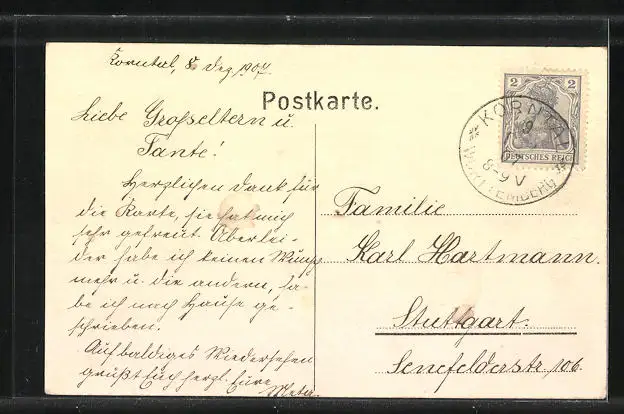 Korntal, 8. Dez. 1907.
Postkarte.
Liebe Großeltern u.
Tante!
Herzlichen Dank für
die Karte, sie hat mich
sehr gefreut. Aber lei-
der habe ich keinen
mehr u. die andern, ha-
be ich nach Hause ge-
schrieben.
Auf baldiges Wiedersehen
grüßt Euch herzl. Eure
2 2
DEUTSCHES REICH
KORNTAL
8-9 V
WÜRTTEMBERG
Familie
Karl Hartmann.
Stuttgart.
Senefelderstr. 106.